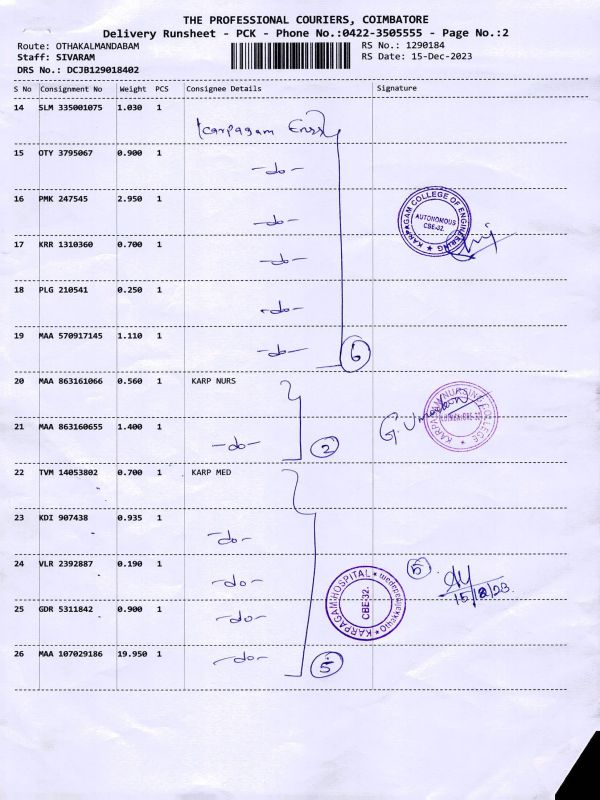 THE PROFESSIONAL COURIERS, COIMBATORE
Delivery Runsheet - PCK - Phone No.:0422-3505555 - Page No.:2
Route: OTHAKALMANDABAM RS No.: 1290184
Staff: SIVARAM RS Date: 15-Dec-2023
DRS No.: DCJB129018402
S No Consignment No Weight PCS Consignee Details Signature
14 SLM 335001075 1.030 1
Karpagam
15 OTY 3795067 0.900 1
-do-
16 PMK 247545 2.950 1
-do-
KARPAGAM COLLEGE OF ENGINEERING
AUTONOMOUS
CBE-32.
17 KRR 1310360 0.700 1
-do-
18 PLG 210541 0.250 1
-do-
19 MAA 570917145 1.110 1
-do- 6
20 MAA 863161066 0.560 1 KARP NURS
21 MAA 863160655 1.400 1
-do- 2
KARPAGAM NURSING COLLEGE
22 TVM 14053802 0.700 1 KARP MED
23 KDI 907438 0.935 1
-do-
24 VLR 2392887 0.190 1
-do- 5
KARPAGAM HOSPITAL
CBE-32.
25 GDR 5311842 0.900 1
-do-
26 MAA 107029186 19.950 1
-do- 5